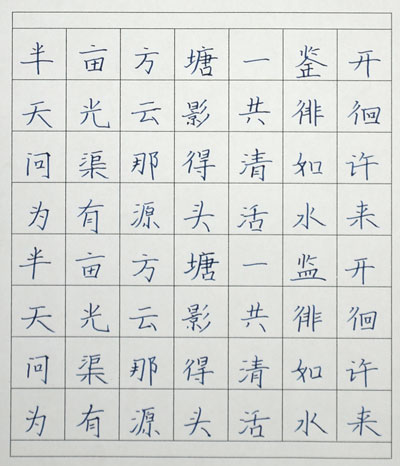 半亩方塘一鉴开
天光云影共徘徊
问渠那得清如许
为有源头活水来
半亩方塘一监开
天光云影共徘徊
问渠那得清如许
为有源头活水来